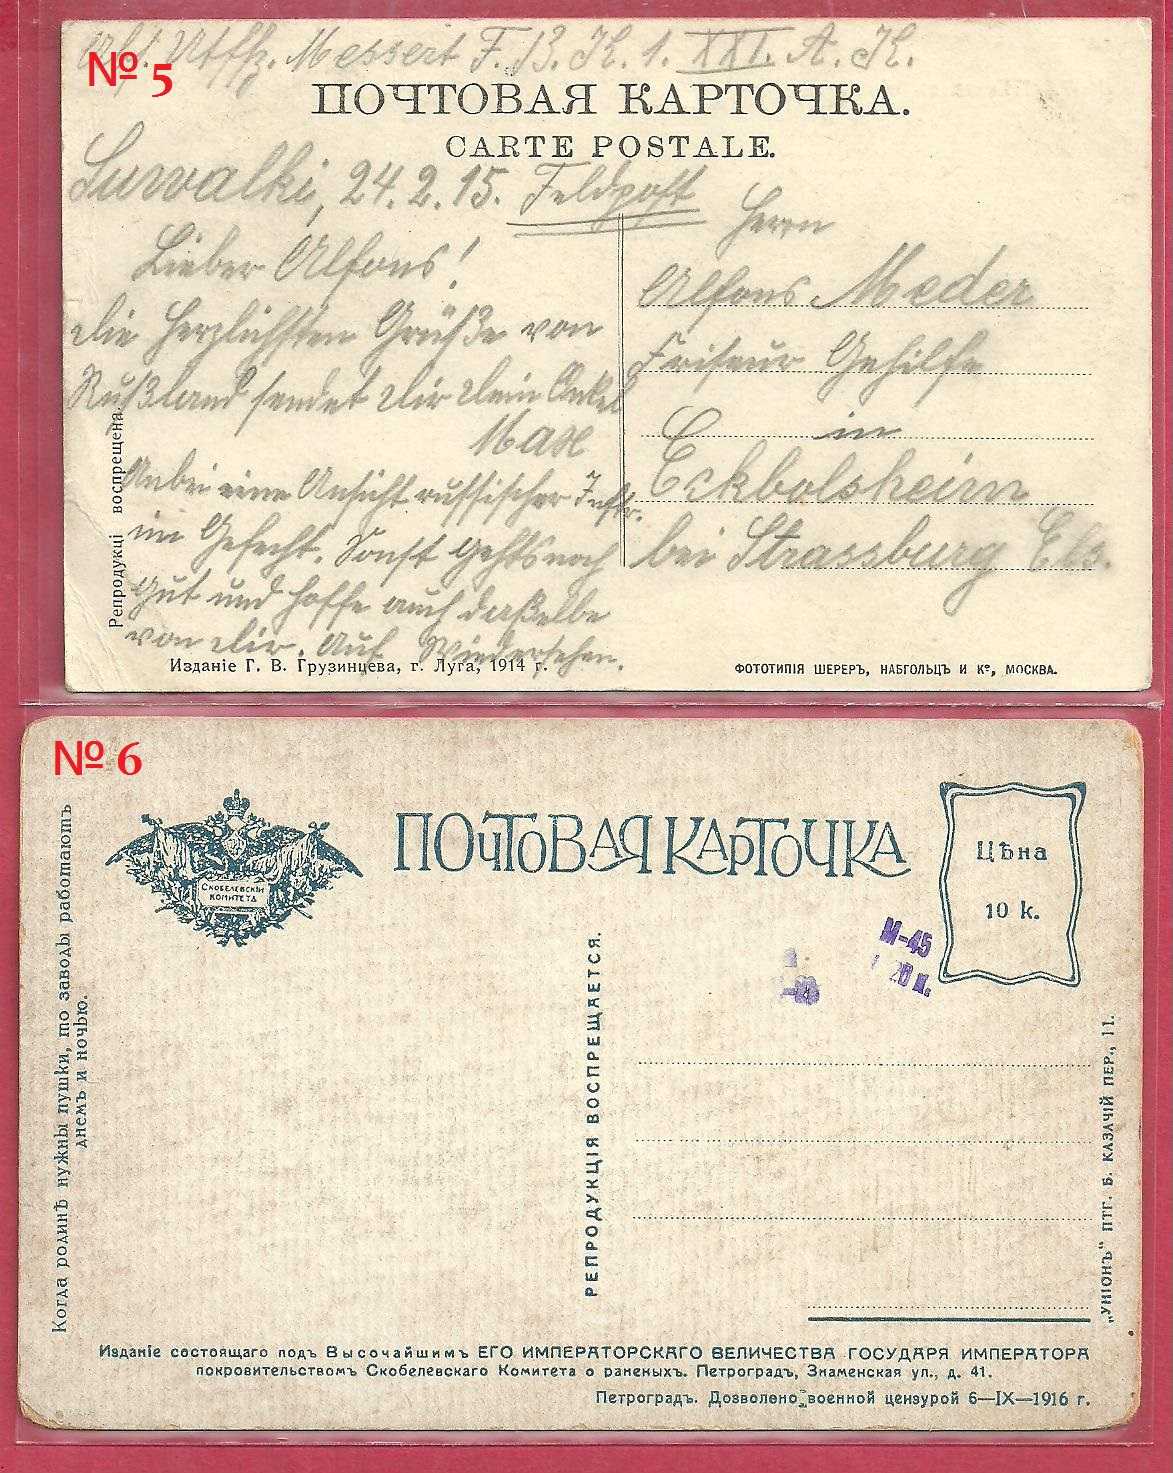 № 5
Utffz. Messert F. B. K. 1. XXI. A. K.
ПОЧТОВАЯ КАРТОЧКА.
CARTE POSTALE.
Suwalki, 24.2.15. Feldpost
Lieber Alfons!
Die herzlichsten Grüße von
Rußland sendet Dir Dein Onkel
Max
Anbei eine Ansicht russischer Inftr.
im Gefecht. Sonst gehts noch
gut und hoffe auch daßelbe
von Dir. Auf Wiedersehen.
Herrn
Alfons Meder
Friseur Gehilfe
in
Eckbolsheim
bei Strassburg Els.
Репродукці воспрещена.
Изданіе Г. В. Грузинцева, г. Луга, 1914 г.
ФОТОТИПІЯ ШЕРЕРЪ, НАБГОЛЬЦЪ И Кº, МОСКВА.
№ 6
Когда родинѣ нужны пушки, то заводы работаютъ
днемъ и ночью.
СКОБЕЛЕВСКІЙ
КОМИТЕТЪ
ПОЧТОВАЯ КАРТОЧКА
Цѣна
10 к.
М-45
20 к.
РЕПРОДУКЦІЯ ВОСПРЕЩАЕТСЯ.
„УНІОНЪ" ПТГ. Б. КАЗАЧІЙ ПЕР., 11.
Изданіе состоящаго подъ Высочайшимъ ЕГО ИМПЕРАТОРСКАГО ВЕЛИЧЕСТВА ГОСУДАРЯ ИМПЕРАТОРА
покровительствомъ Скобелевскаго Комитета о раненыхъ. Петроградъ, Знаменская ул., д. 41.
Петроградъ. Дозволено военной цензурой 6—IX—1916 г.